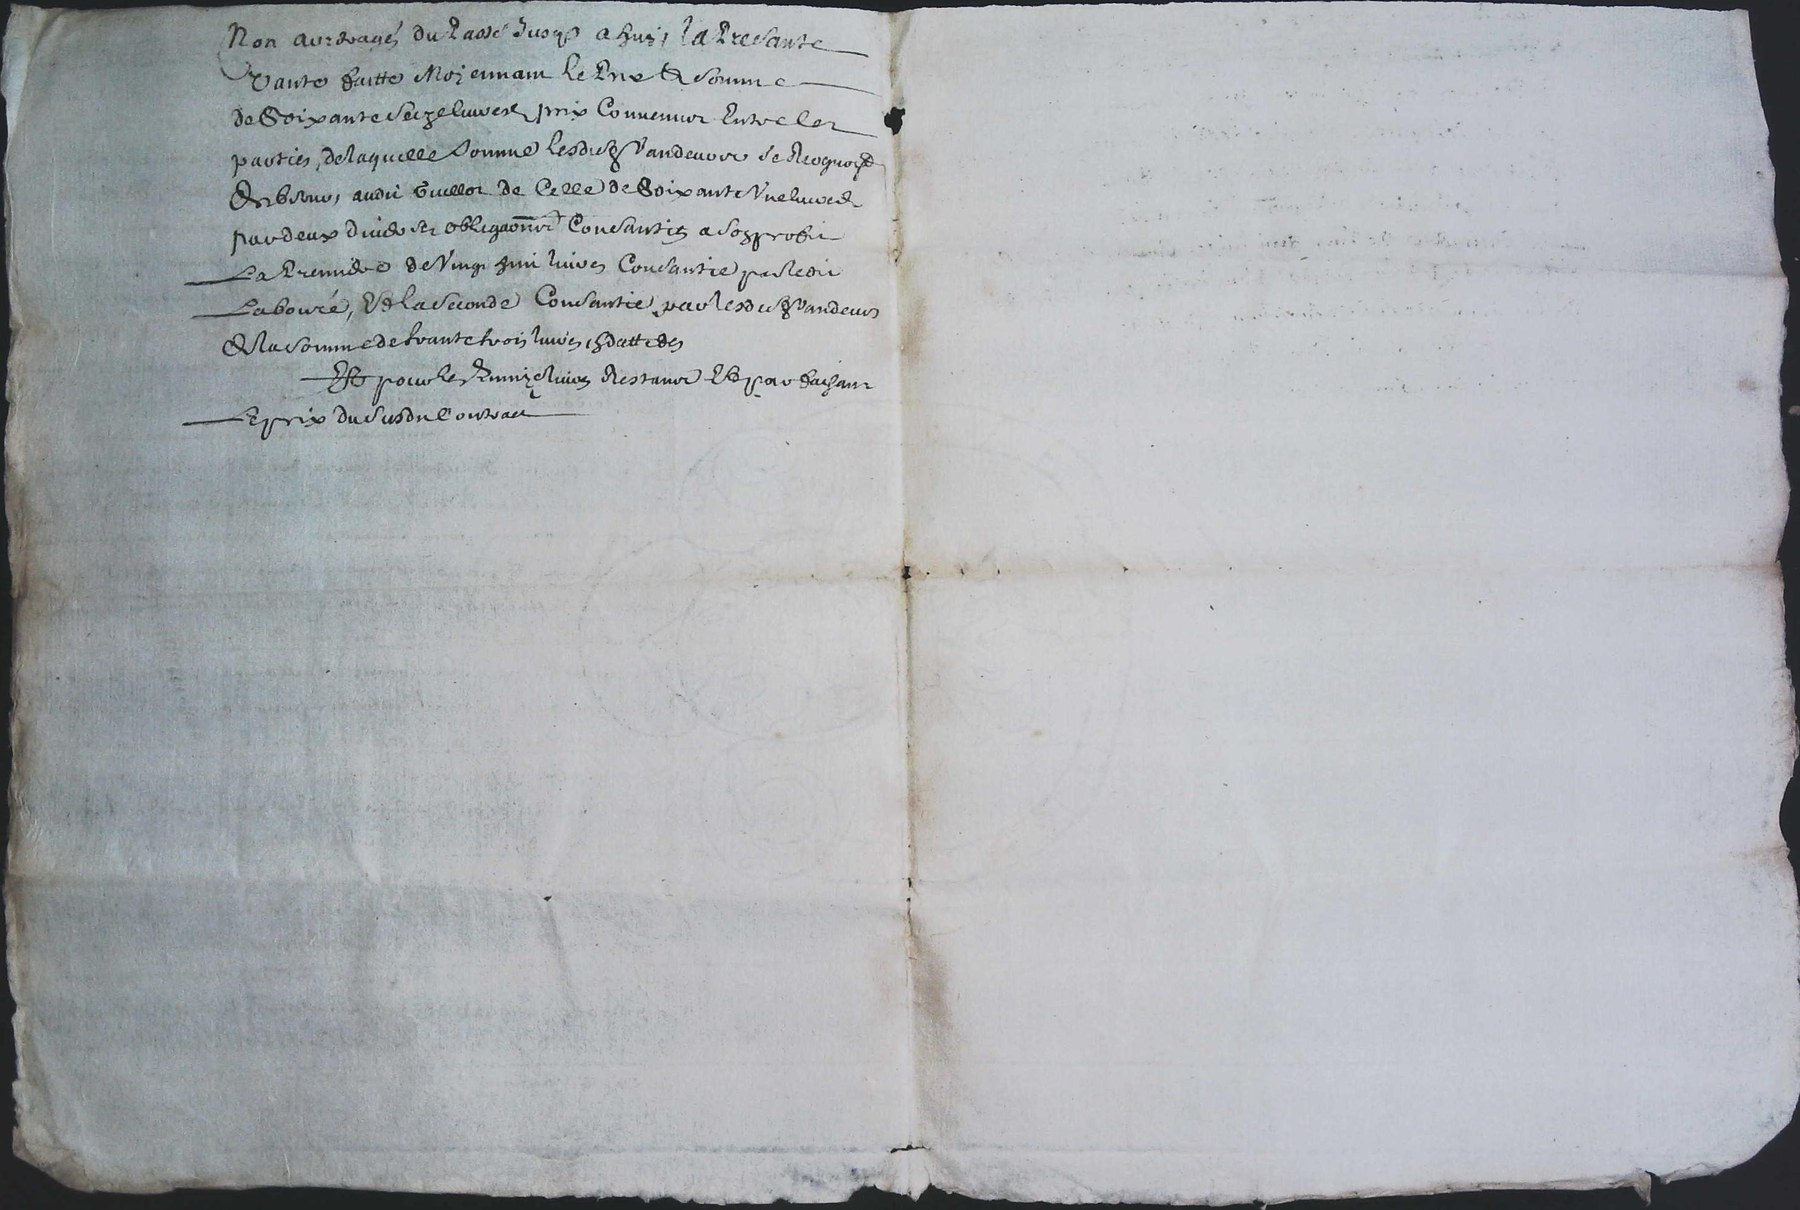 Non arrérages du passé jusqu a huy, la presante
vante faitte moyennant le prix & somme
de Soixante seize livres prix convenu entre les
parties, de laquelle somme lesdits vandeurs se
audit Guillot de celle de Soixante une livres
par deux obligaõns consanties a son profit
La premiere de vingt huit livres consantie par ledit
Labouré, & la seconde consantie par lesdits vandeurs
de la somme de trante trois livres en datte des
Et pour les quinze livres restant
Le prix du susdit contract